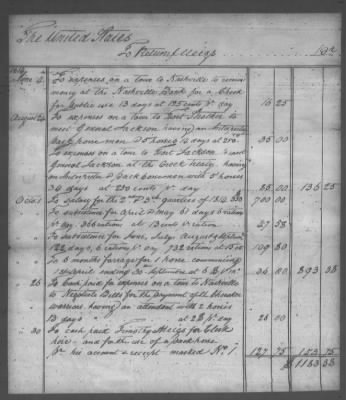 The United States
To Return J Meigs Dr
1814
June 4 To expenses on a tour to Nashville to
money at the Nashville Bank for a Check
for public use 13 days at 125 cents pr day 16 25
August 20 To expenses on a tour to Fort
meet General Jackson having an Interpreter
pack horse man & 5 horses 14 days at 250 cts 35 00
To expenses on a tour to Fort Jackson to meet
General Jackson at the Creek treaty, having
an Interpreter & pack horseman with 5 horses
34 days at 250 cents pr day 85 00 136 25
Octo 1 To salary for the 2nd & 3rd quarters of 1814 700 00
To subsistence for April & May 61 days 6 rations
pr day 366 rations at 13 cents pr ration 47 58
" To subsistence for June, July, August & Septemr
122 days, 6 rations pr day 732 rations at 15 cts 109 80
" To 6 months forrage for 1 horse commencing
1st April ending 30 September at 6 $ pr mo 36 00 893 38
" 26 To Cash paid for expenses on a tour to Nashville
to Negotiate Bills for the payment of the Cherokee
warriors, having an attendant with 2 horses
13 days at 2 $ pr day 26 00
" 30 To cash paid Timothy Meigs for Clerk
hire - and for the use of a pack horse
pr his account & receipt marked No. 1 127 75 153 75
$ 1183 38